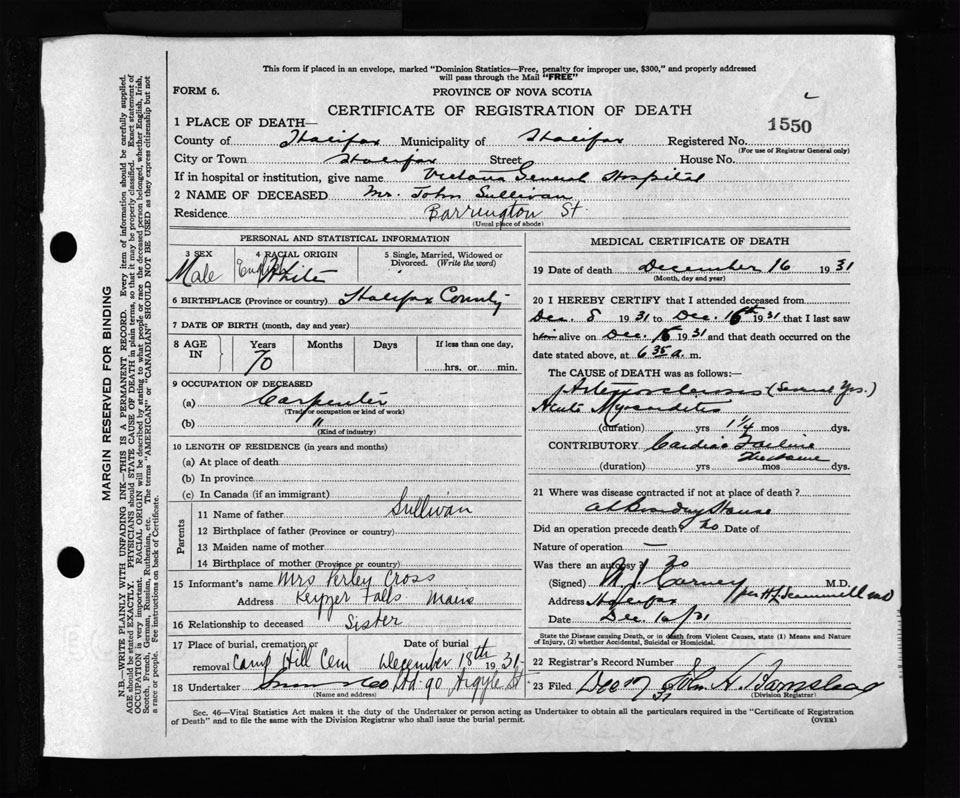 This form if placed in an envelope, marked "Dominion Statistics—Free, penalty for improper use, $300," and properly addressed
will pass through the Mail "FREE"
FORM 6.
PROVINCE OF NOVA SCOTIA
CERTIFICATE OF REGISTRATION OF DEATH
1550
1 PLACE OF DEATH—
County of Halifax Municipality of Halifax Registered No.
(For use of Registrar General only)
City or Town Halifax Street House No.
If in hospital or institution, give name Victoria General Hospital
2 NAME OF DECEASED Mr. John Sullivan
Residence Barrington St.
(Usual place of abode)
PERSONAL AND STATISTICAL INFORMATION
3 SEX
Male
4 RACIAL ORIGIN
White
5 Single, Married, Widowed or
Divorced. (Write the word)
6 BIRTHPLACE (Province or country) Halifax County
7 DATE OF BIRTH (month, day and year)
8 AGE IN
Years Months Days If less than one day,
70
hrs. or min.
9 OCCUPATION OF DECEASED
(a) Carpenter
(Trade or occupation or kind of work)
(b) "
(Kind of industry)
10 LENGTH OF RESIDENCE (in years and months)
(a) At place of death
(b) In province
(c) In Canada (if an immigrant)
Parents
11 Name of father Sullivan
12 Birthplace of father (Province or country)
13 Maiden name of mother
14 Birthplace of mother (Province or country)
15 Informant's name Mrs Perley Cross
Address Keyzer Falls Maine
16 Relationship to deceased Sister
17 Place of burial, cremation or Date of burial
removal Camp Hill Cem December 18th 1931
18 Undertaker Snow & Co Ltd 90 Argyle St
(Name and address)
MEDICAL CERTIFICATE OF DEATH
19 Date of death December 16 1931
(Month, day and year)
20 I HEREBY CERTIFY that I attended deceased from
Dec. 8 1931 to Dec. 16th 1931 that I last saw
him alive on Dec 16 1931 and that death occurred on the
date stated above, at 6 35 a. m.
The CAUSE of DEATH was as follows:—
Arteriosclerosis (Several yrs.)
Acute Myocarditis
(duration) yrs 1 1/4 mos dys.
CONTRIBUTORY Cardiac Failure
(duration) yrs mos dys.
21 Where was disease contracted if not at place of death?
at Boarding House
Did an operation precede death? no Date of
Nature of operation —
Was there an autopsy? no
(Signed) A. J. Carney M.D.
per H. Scammell M.D.
Address Halifax
Date Dec 16/31
State the Disease causing Death, or in death from Violent Causes, state (1) Means and Nature
of Injury, (2) whether Accidental, Suicidal or Homicidal.
22 Registrar's Record Number
23 Filed Dec 17 John H. Barnstead
(Division Registrar)
Sec. 46—Vital Statistics Act makes it the duty of the Undertaker or person acting as Undertaker to obtain all the particulars required in the "Certificate of Registration
of Death" and to file the same with the Division Registrar who shall issue the burial permit.
(OVER)
MARGIN RESERVED FOR BINDING
N.B.—WRITE PLAINLY WITH UNFADING INK—THIS IS A PERMANENT RECORD. Every item of information should be carefully supplied.
AGE should be stated EXACTLY. PHYSICIANS should STATE CAUSE OF DEATH in plain terms, so that it may be properly classified. Exact statement of
OCCUPATION is very important. RACIAL ORIGIN will be described by stating to what people or race the deceased person belonged, whether English, Irish,
Scotch, French, German, Russian, Ruthenian, etc. The terms "AMERICAN" or "CANADIAN" SHOULD NOT BE USED as they express citizenship but not
a race or people. See instructions on back of Certificate.